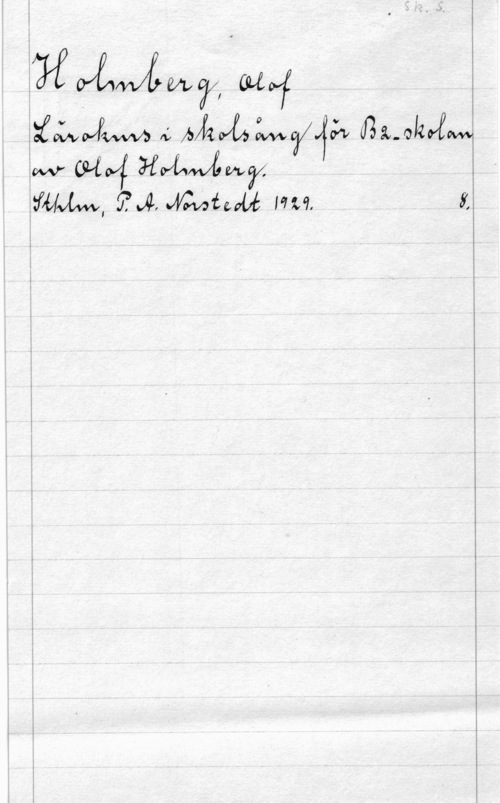 Sk. S.
Holmberg, Olof
Lärokurs i skolsång för B2-skolan
av Olof Holmberg.
Sthlm, P. A. Norstedt 1929. 8.